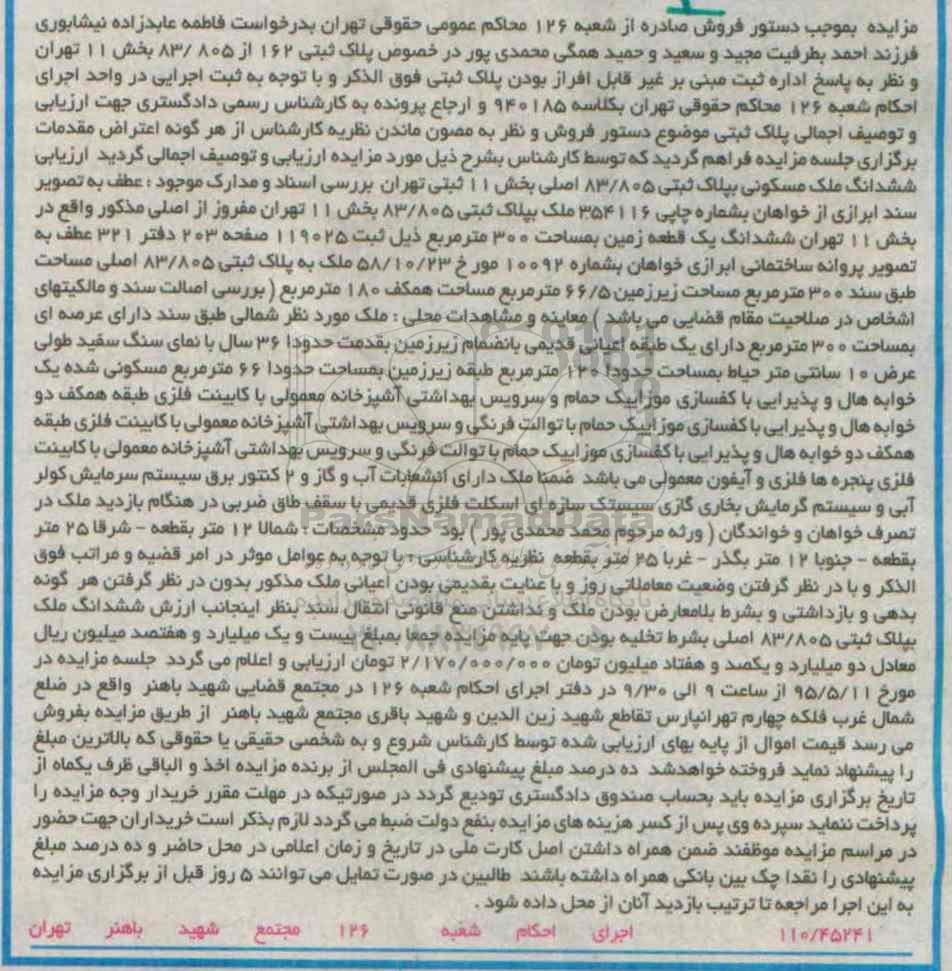 مزایده بموجب دستور فروش صادره از شعبه ۱۲۶ محاکم عمومی حقوقی تهران بدرخواست فاطمه عابدزاده نیشابوری
فرزند احمد بطرفیت مجید و سعید و حمید همگی محمدی پور در خصوص پلاک ثبتی ۱۶۲ از ۸۰۵ /۸۳ بخش ۱۱ تهران
و نظر به پاسخ اداره ثبت مبنی بر غیر قابل افراز بودن پلاک ثبتی فوق الذکر و با توجه به ثبت اجرایی در واحد اجرای
احکام شعبه ۱۲۶ محاکم حقوقی تهران بکلاسه ۹۴۰۱۸۵ و ارجاع پرونده به کارشناس رسمی دادگستری جهت ارزیابی
و توصیف اجمالی پلاک ثبتی موضوع دستور فروش و نظر به مصون ماندن نظریه کارشناس از هر گونه اعتراض مقدمات
برگزاری جلسه مزایده فراهم گردید که توسط کارشناس بشرح ذیل مورد مزایده ارزیابی و توصیف اجمالی گردید ارزیابی
ششدانگ ملک مسکونی بپلاک ثبتی ۸۳/۸۰۵ اصلی بخش ۱۱ ثبتی تهران بررسی اسناد و مدارک موجود : عطف به تصویر
سند ابرازی از خواهان بشماره چاپی ۳۵۴۱۱۶ ملک بپلاک ثبتی ۸۳/۸۰۵ بخش ۱۱ تهران مفروز از اصلی مذکور واقع در
بخش ۱۱ تهران ششدانگ یک قطعه زمین بمساحت ۳۰۰ مترمربع ذیل ثبت ۱۱۹۰۲۵ صفحه ۲۰۳ دفتر ۳۲۱ عطف به
تصویر پروانه ساختمانی ابرازی خواهان بشماره ۱۰۰۹۲ مورخ ۵۸/۱۰/۲۳ ملک به پلاک ثبتی ۸۳/۸۰۵ اصلی مساحت
طبق سند ۳۰۰ مترمربع مساحت زیرزمین ۶۶/۵ مترمربع مساحت همکف ۱۸۰ مترمربع ( بررسی اصالت سند و مالکیتهای
اشخاص در صلاحیت مقام قضایی می باشد ) معاینه و مشاهدات محلی : ملک مورد نظر شمالی طبق سند دارای عرصه ای
بمساحت ۳۰۰ مترمربع دارای یک طبقه اعیانی قدیمی بانضمام زیرزمین بقدمت حدودا ۳۶ سال با نمای سنگ سفید طولی
عرض ۱۰ سانتی متر حیاط بمساحت حدودا ۱۲۰ مترمربع طبقه زیرزمین بمساحت حدودا ۶۶ مترمربع مسکونی شده یک
خوابه هال و پذیرایی با کفسازی موزاییک حمام و سرویس بهداشتی آشپزخانه معمولی با کابینت فلزی طبقه همکف دو
خوابه هال و پذیرایی با کفسازی موزاییک حمام با توالت فرنگی و سرویس بهداشتی آشپزخانه معمولی با کابینت فلزی طبقه
همکف دو خوابه هال و پذیرایی با کفسازی موزاییک حمام با توالت فرنگی و سرویس بهداشتی آشپزخانه معمولی با کابینت
فلزی پنجره ها فلزی و آیفون معمولی می باشد ضمنا ملک دارای انشعابات آب و گاز و ۲ کنتور برق سیستم سرمایش کولر
آبی و سیستم گرمایش بخاری گازی سیستک سازه ای اسکلت فلزی قدیمی با سقف طاق ضربی در هنگام بازدید ملک در
تصرف خواهان و خواندگان ( ورثه مرحوم محمد محمدی پور ) بود حدود مشخصات : شمالا ۱۲ متر بقطعه - شرقا ۲۵ متر
بقطعه - جنوبا ۱۲ متر بگذر - غربا ۲۵ متر بقطعه نظریه کارشناسی : با توجه به عوامل موثر در امر قضیه و مراتب فوق
الذکر و با در نظر گرفتن وضعیت معاملاتی روز و با عنایت بقدیمی بودن اعیانی ملک مذکور بدون در نظر گرفتن هر گونه
بدهی و بازداشتی و بشرط بلامعارض بودن ملک و نداشتن منع قانونی انتقال سند بنظر اینجانب ارزش ششدانگ ملک
بپلاک ثبتی ۸۳/۸۰۵ اصلی بشرط تخلیه بودن جهت پایه مزایده جمعا بمبلغ بیست و یک میلیارد و هفتصد میلیون ریال
معادل دو میلیارد و یکصد و هفتاد میلیون تومان ۲/۱۷۰/۰۰۰/۰۰۰ تومان ارزیابی و اعلام می گردد جلسه مزایده در
مورخ ۹۵/۵/۱۱ از ساعت ۹ الی ۹/۳۰ در دفتر اجرای احکام شعبه ۱۲۶ در مجتمع قضایی شهید باهنر واقع در ضلع
شمال غرب فلکه چهارم تهرانپارس تقاطع شهید زین الدین و شهید باقری مجتمع شهید باهنر از طریق مزایده بفروش
می رسد قیمت اموال از پایه بهای ارزیابی شده توسط کارشناس شروع و به شخصی حقیقی یا حقوقی که بالاترین مبلغ
را پیشنهاد نماید فروخته خواهدشد ده درصد مبلغ پیشنهادی فی المجلس از برنده مزایده اخذ و الباقی ظرف یکماه از
تاریخ برگزاری مزایده باید بحساب صندوق دادگستری تودیع گردد در صورتیکه در مهلت مقرر خریدار وجه مزایده را
پرداخت ننماید سپرده وی پس از کسر هزینه های مزایده بنفع دولت ضبط می گردد لازم بذکر است خریداران جهت حضور
در مراسم مزایده موظفند ضمن همراه داشتن اصل کارت ملی در تاریخ و زمان اعلامی در محل حاضر و ده درصد مبلغ
پیشنهادی را نقدا چک بین بانکی همراه داشته باشند طالبین در صورت تمایل می توانند ۵ روز قبل از برگزاری مزایده
به این اجرا مراجعه تا ترتیب بازدید آنان از محل داده شود .
۱۱۰/۴۵۲۴۱ اجرای احکام شعبه ۱۲۶ مجتمع شهید باهنر تهران
ParsNamadData